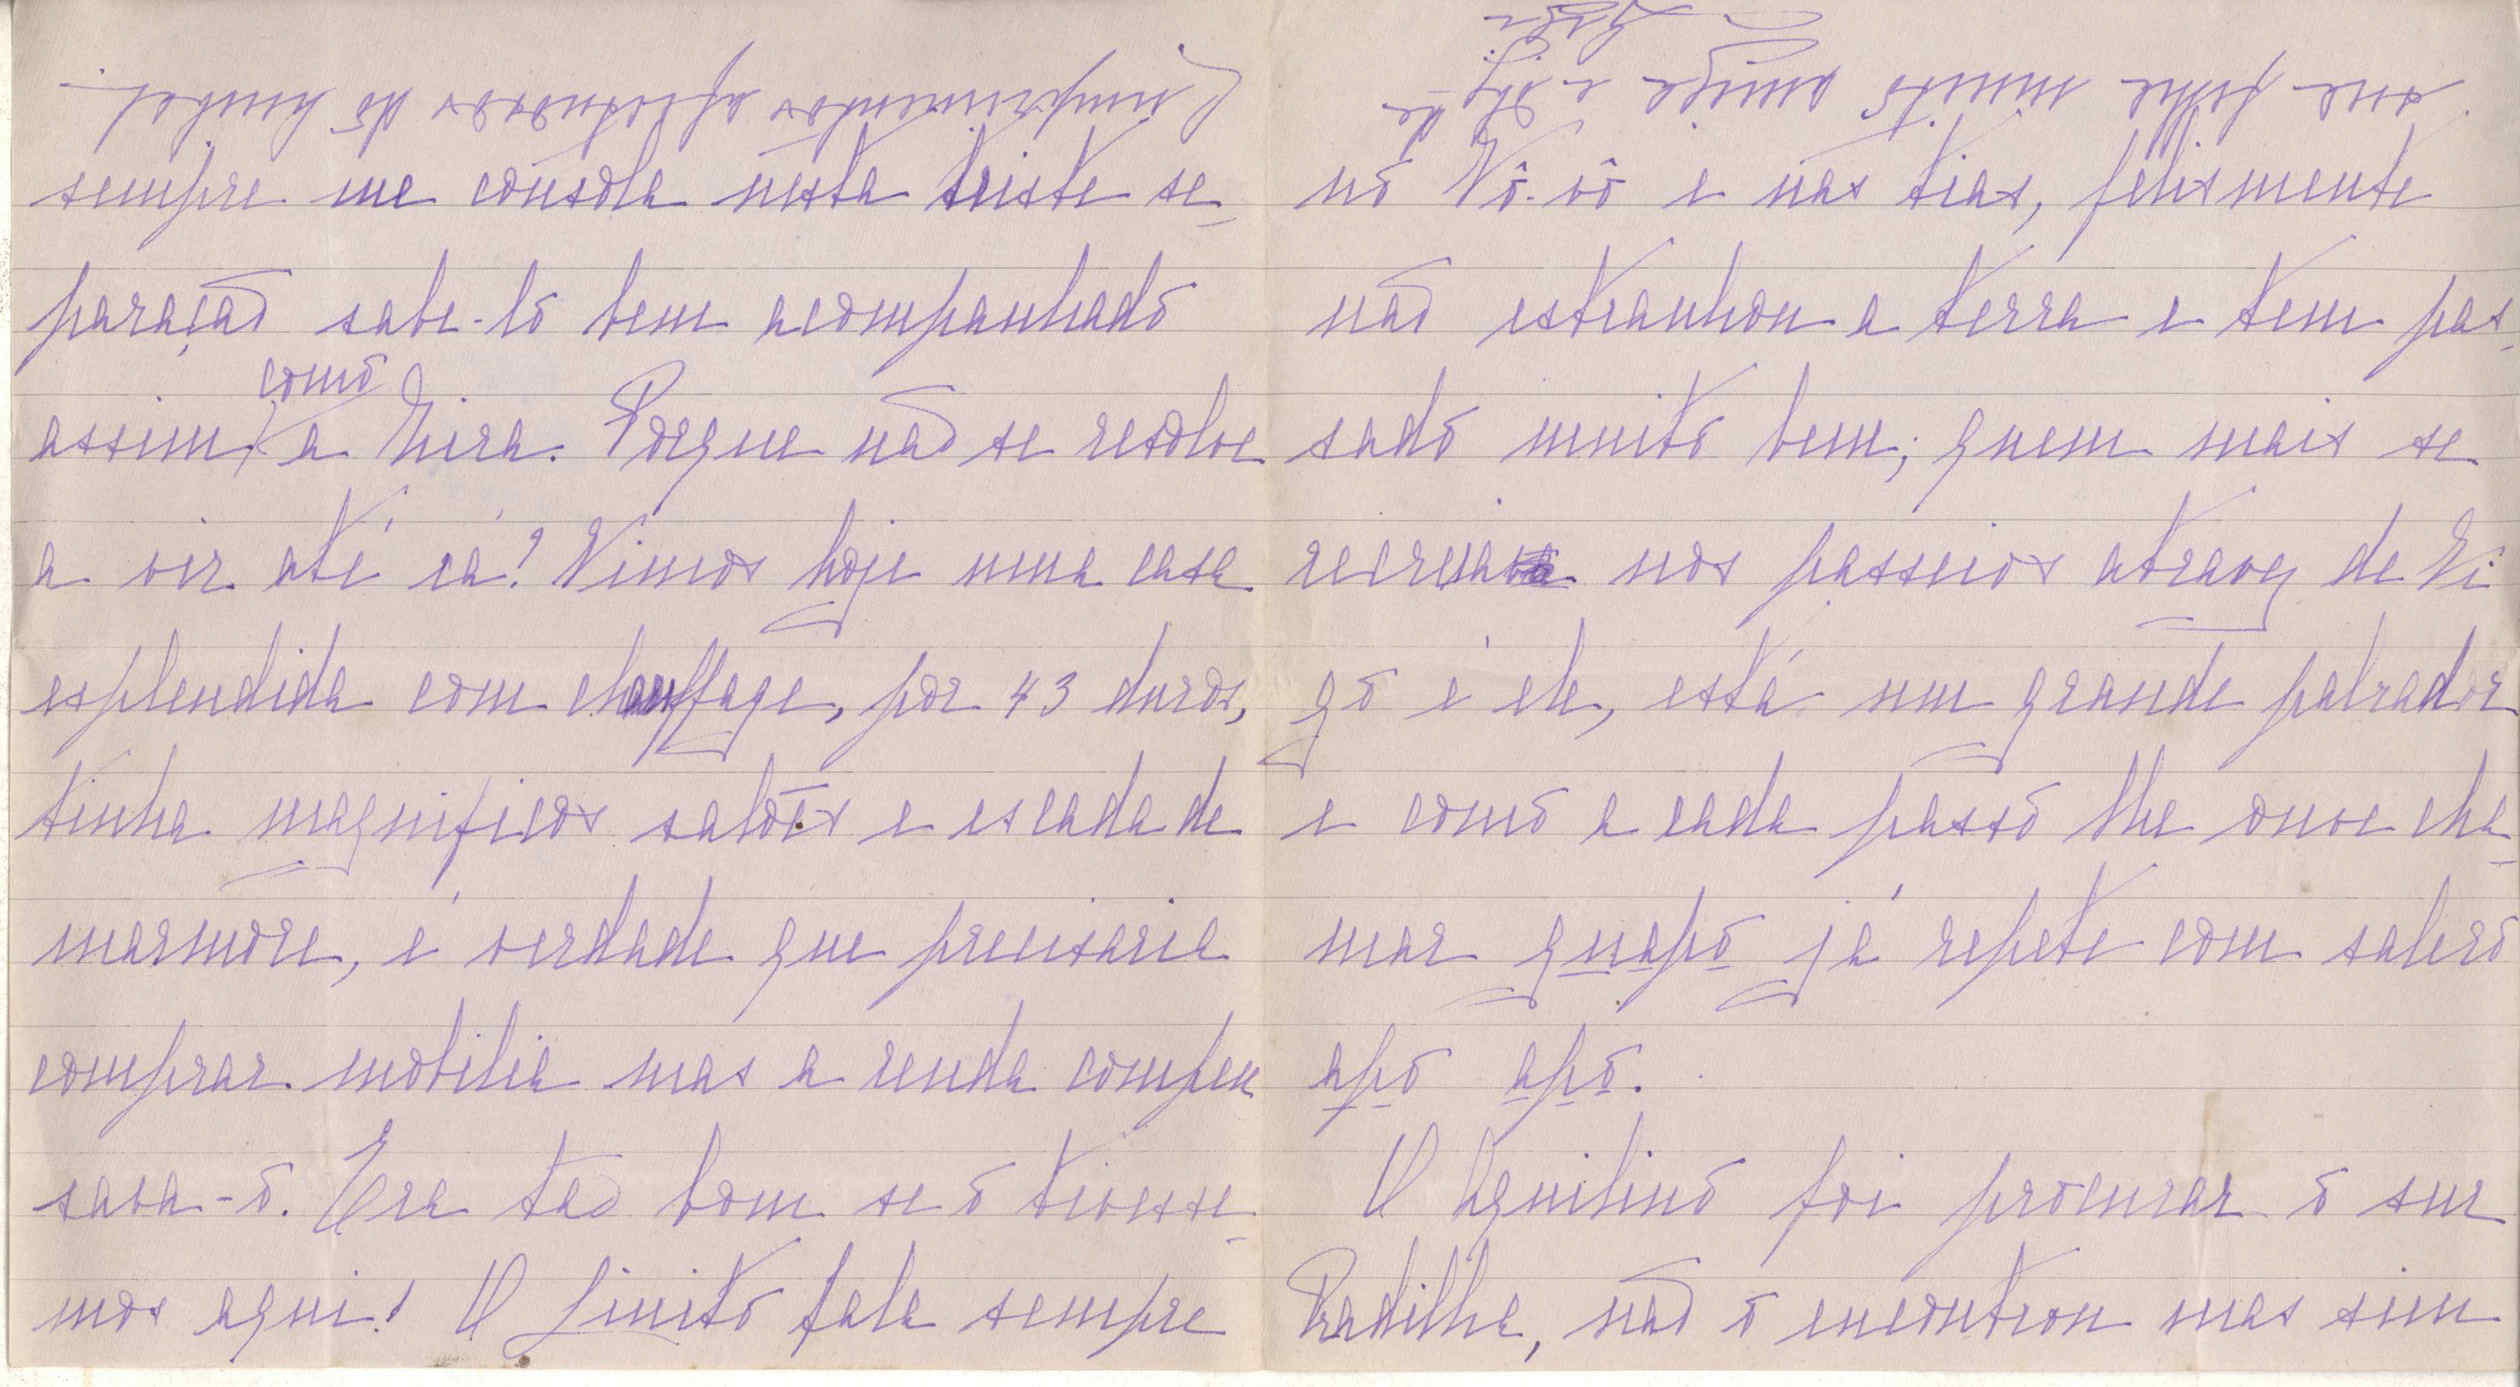 sempre me consola nesta triste se-
paração sabe-lo bem acompanhado
assim, como a Mira. Porque não se resolve
a vir até cá? Vimos hoje uma casa
esplendida com chauffage, por 43 duros,
tinha magnificos salões e escada de
marmore, é verdade que precisaria
comprar mobilia mas a renda compen
sava-o. Era tão bom se o tivesse-
mos aqui! O Linito fala sempre
Cumprimentos affectuosos do Miguel.
no Vô-vô e nas tias, felismente
não estranhou a terra e tem pas-
sado muito bem; quem mais se
recreia nos passeios atravez de Vi
go é ele, está um grande palrador
e como a cada passo lhe ouve cha-
mar guapo já repete com salero
apo apo.
O Aquilino foi procurar o snr
Pradilha, não o encontrou mas sim
sua filha muito amiga e